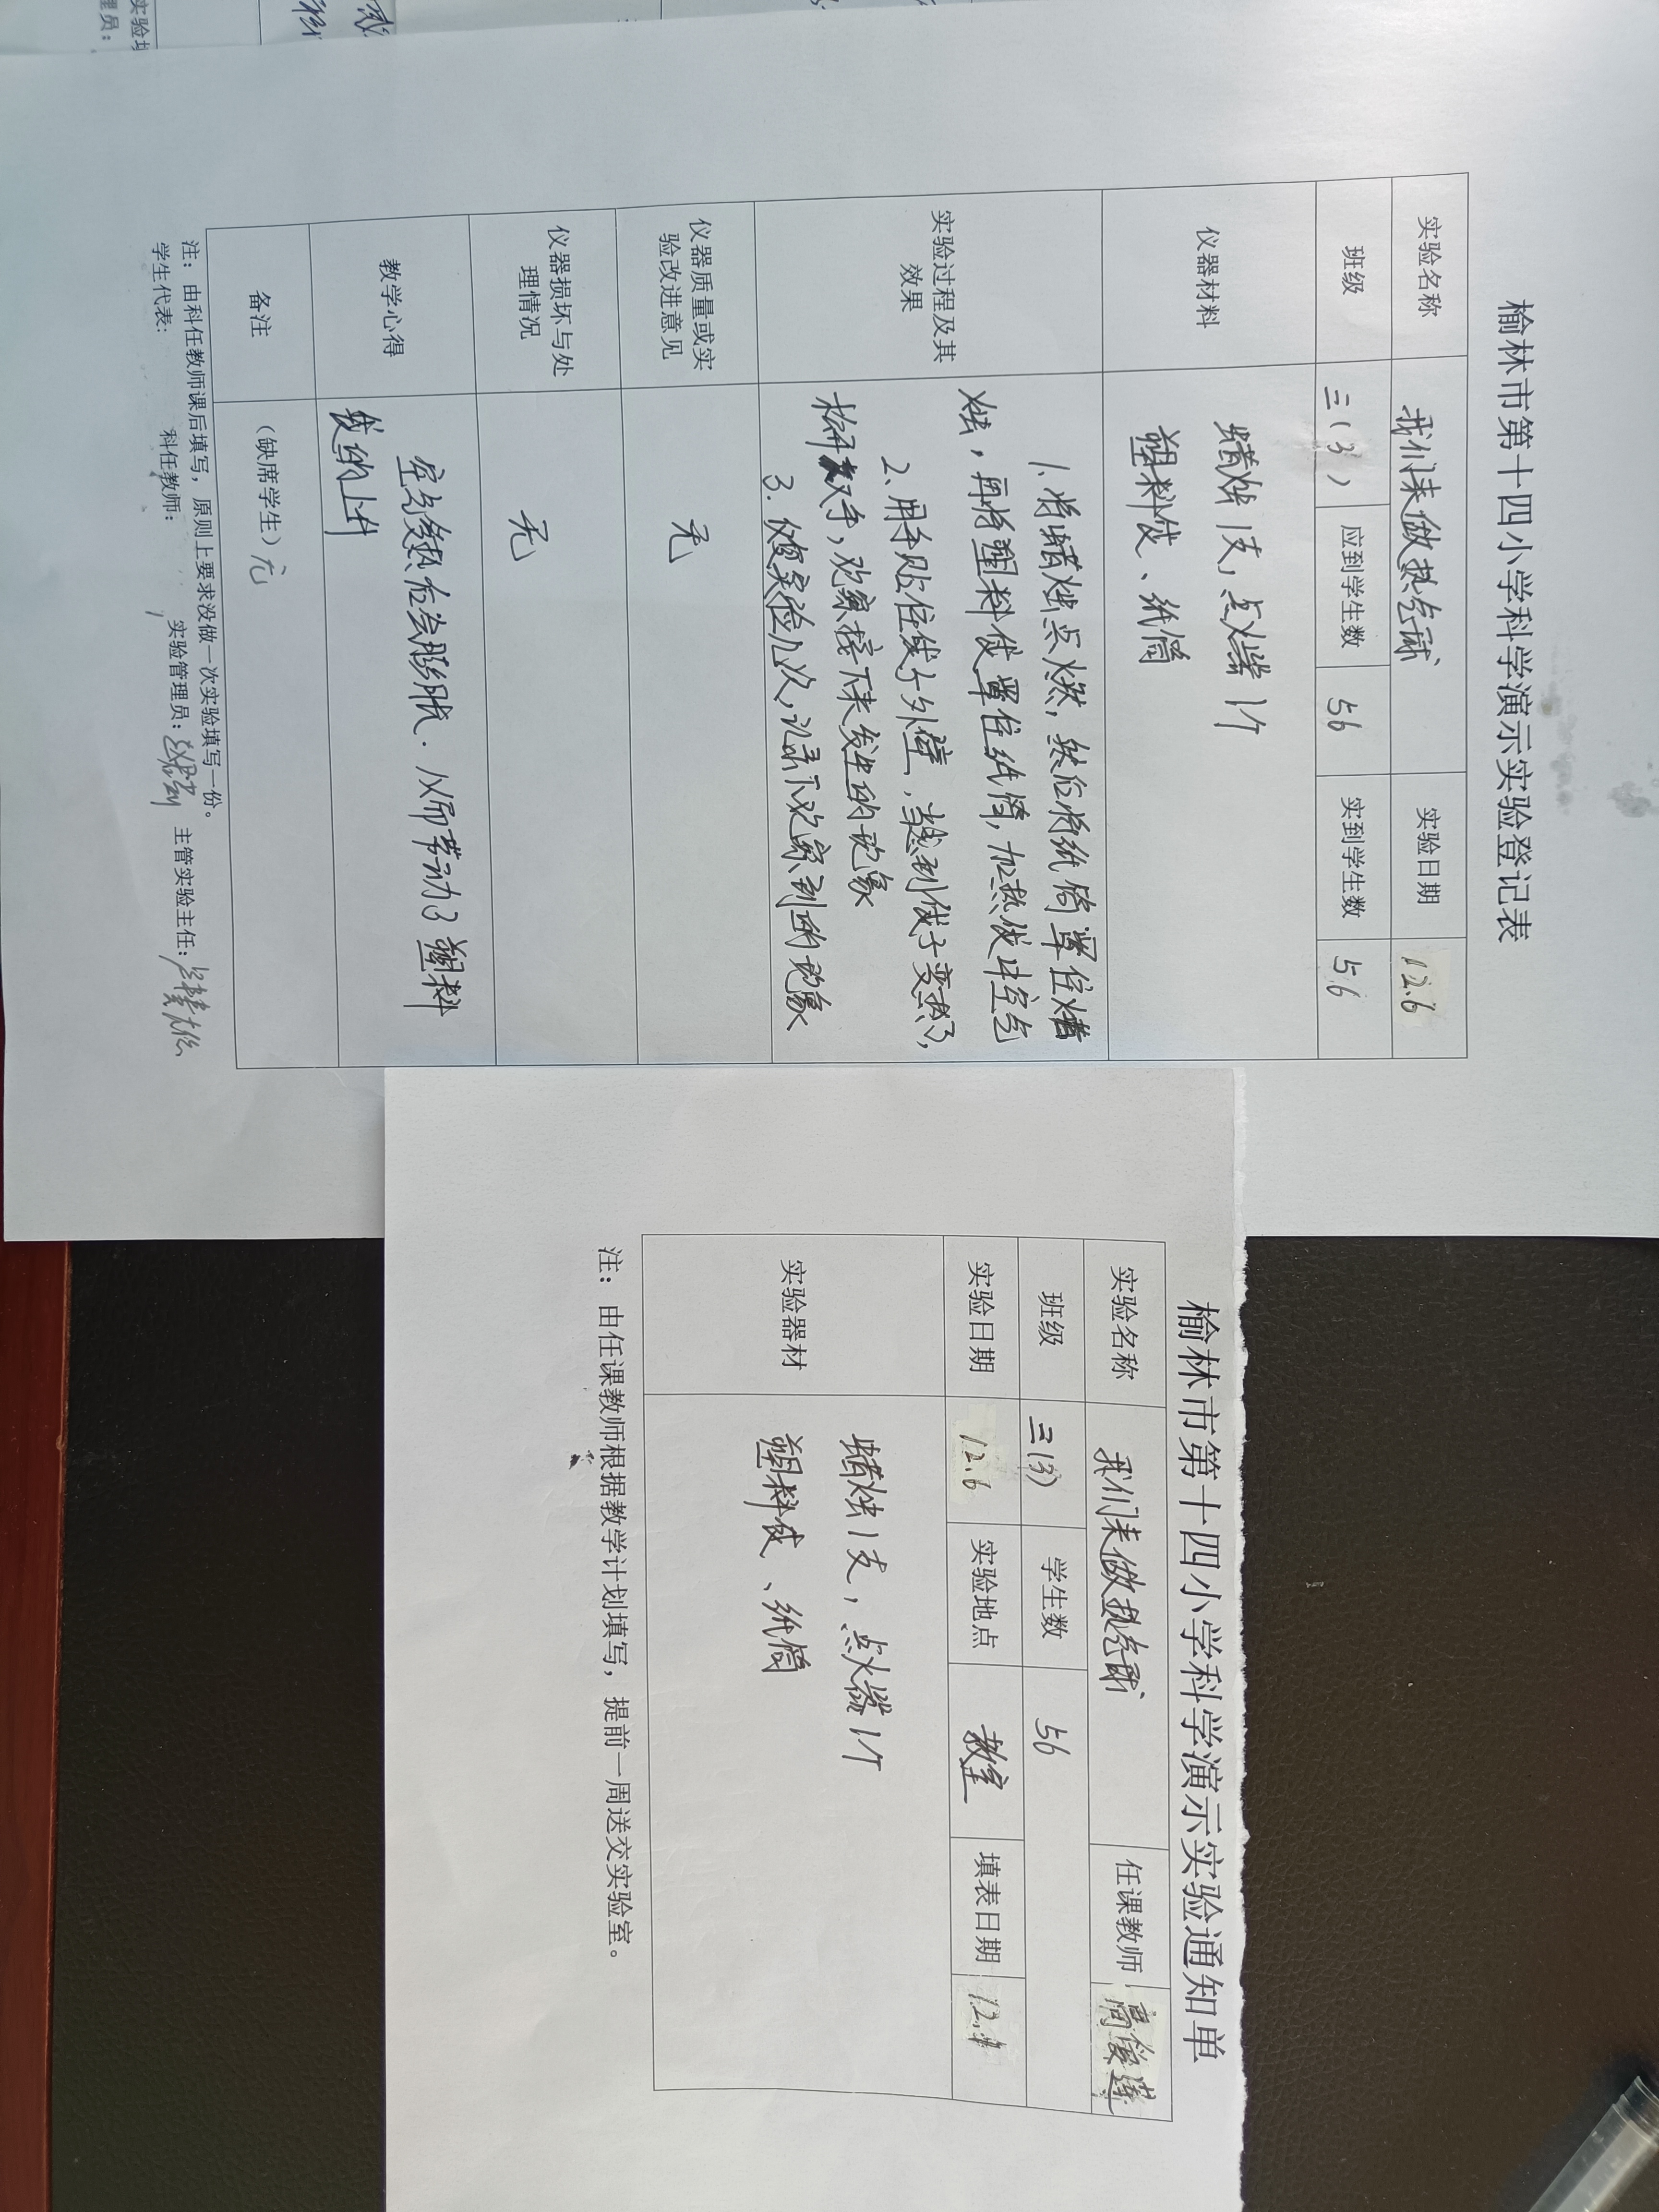 榆林市第十四小学科学演示实验登记表
实验名称 我们来做热气球 实验日期 12.6
班级 三(3) 应到学生数 56 实到学生数 56
仪器材料
蜡烛1支，点火器1个
塑料袋、纸筒
实验过程及其
效果
1.将蜡烛点燃，然后将纸筒罩住蜡
烛，再将塑料袋罩住纸筒，加热袋中空气
2.用手贴住袋子外壁，当感到袋子变热了，
松开双手，观察接下来发生的现象
3.做实验几次，记录下观察到的现象
仪器质量或实
验改进意见
无
仪器损坏与处
理情况
无
教学心得
空气受热后会膨胀.从而带动了塑料
袋的上升
备注 (缺席学生)无
注：由科任教师课后填写，原则上要求没做一次实验填写一份。
学生代表： 科任教师： 实验管理员： 主管实验主任：
榆林市第十四小学科学演示实验通知单
实验名称 我们来做热气球 任课教师 高俊莲
班级 三(3) 学生数 56
实验日期 12.6 实验地点 教室 填表日期
实验器材
蜡烛1支，点火器1个
塑料袋、纸筒
注：由任课教师根据教学计划填写，提前一周送交实验室。